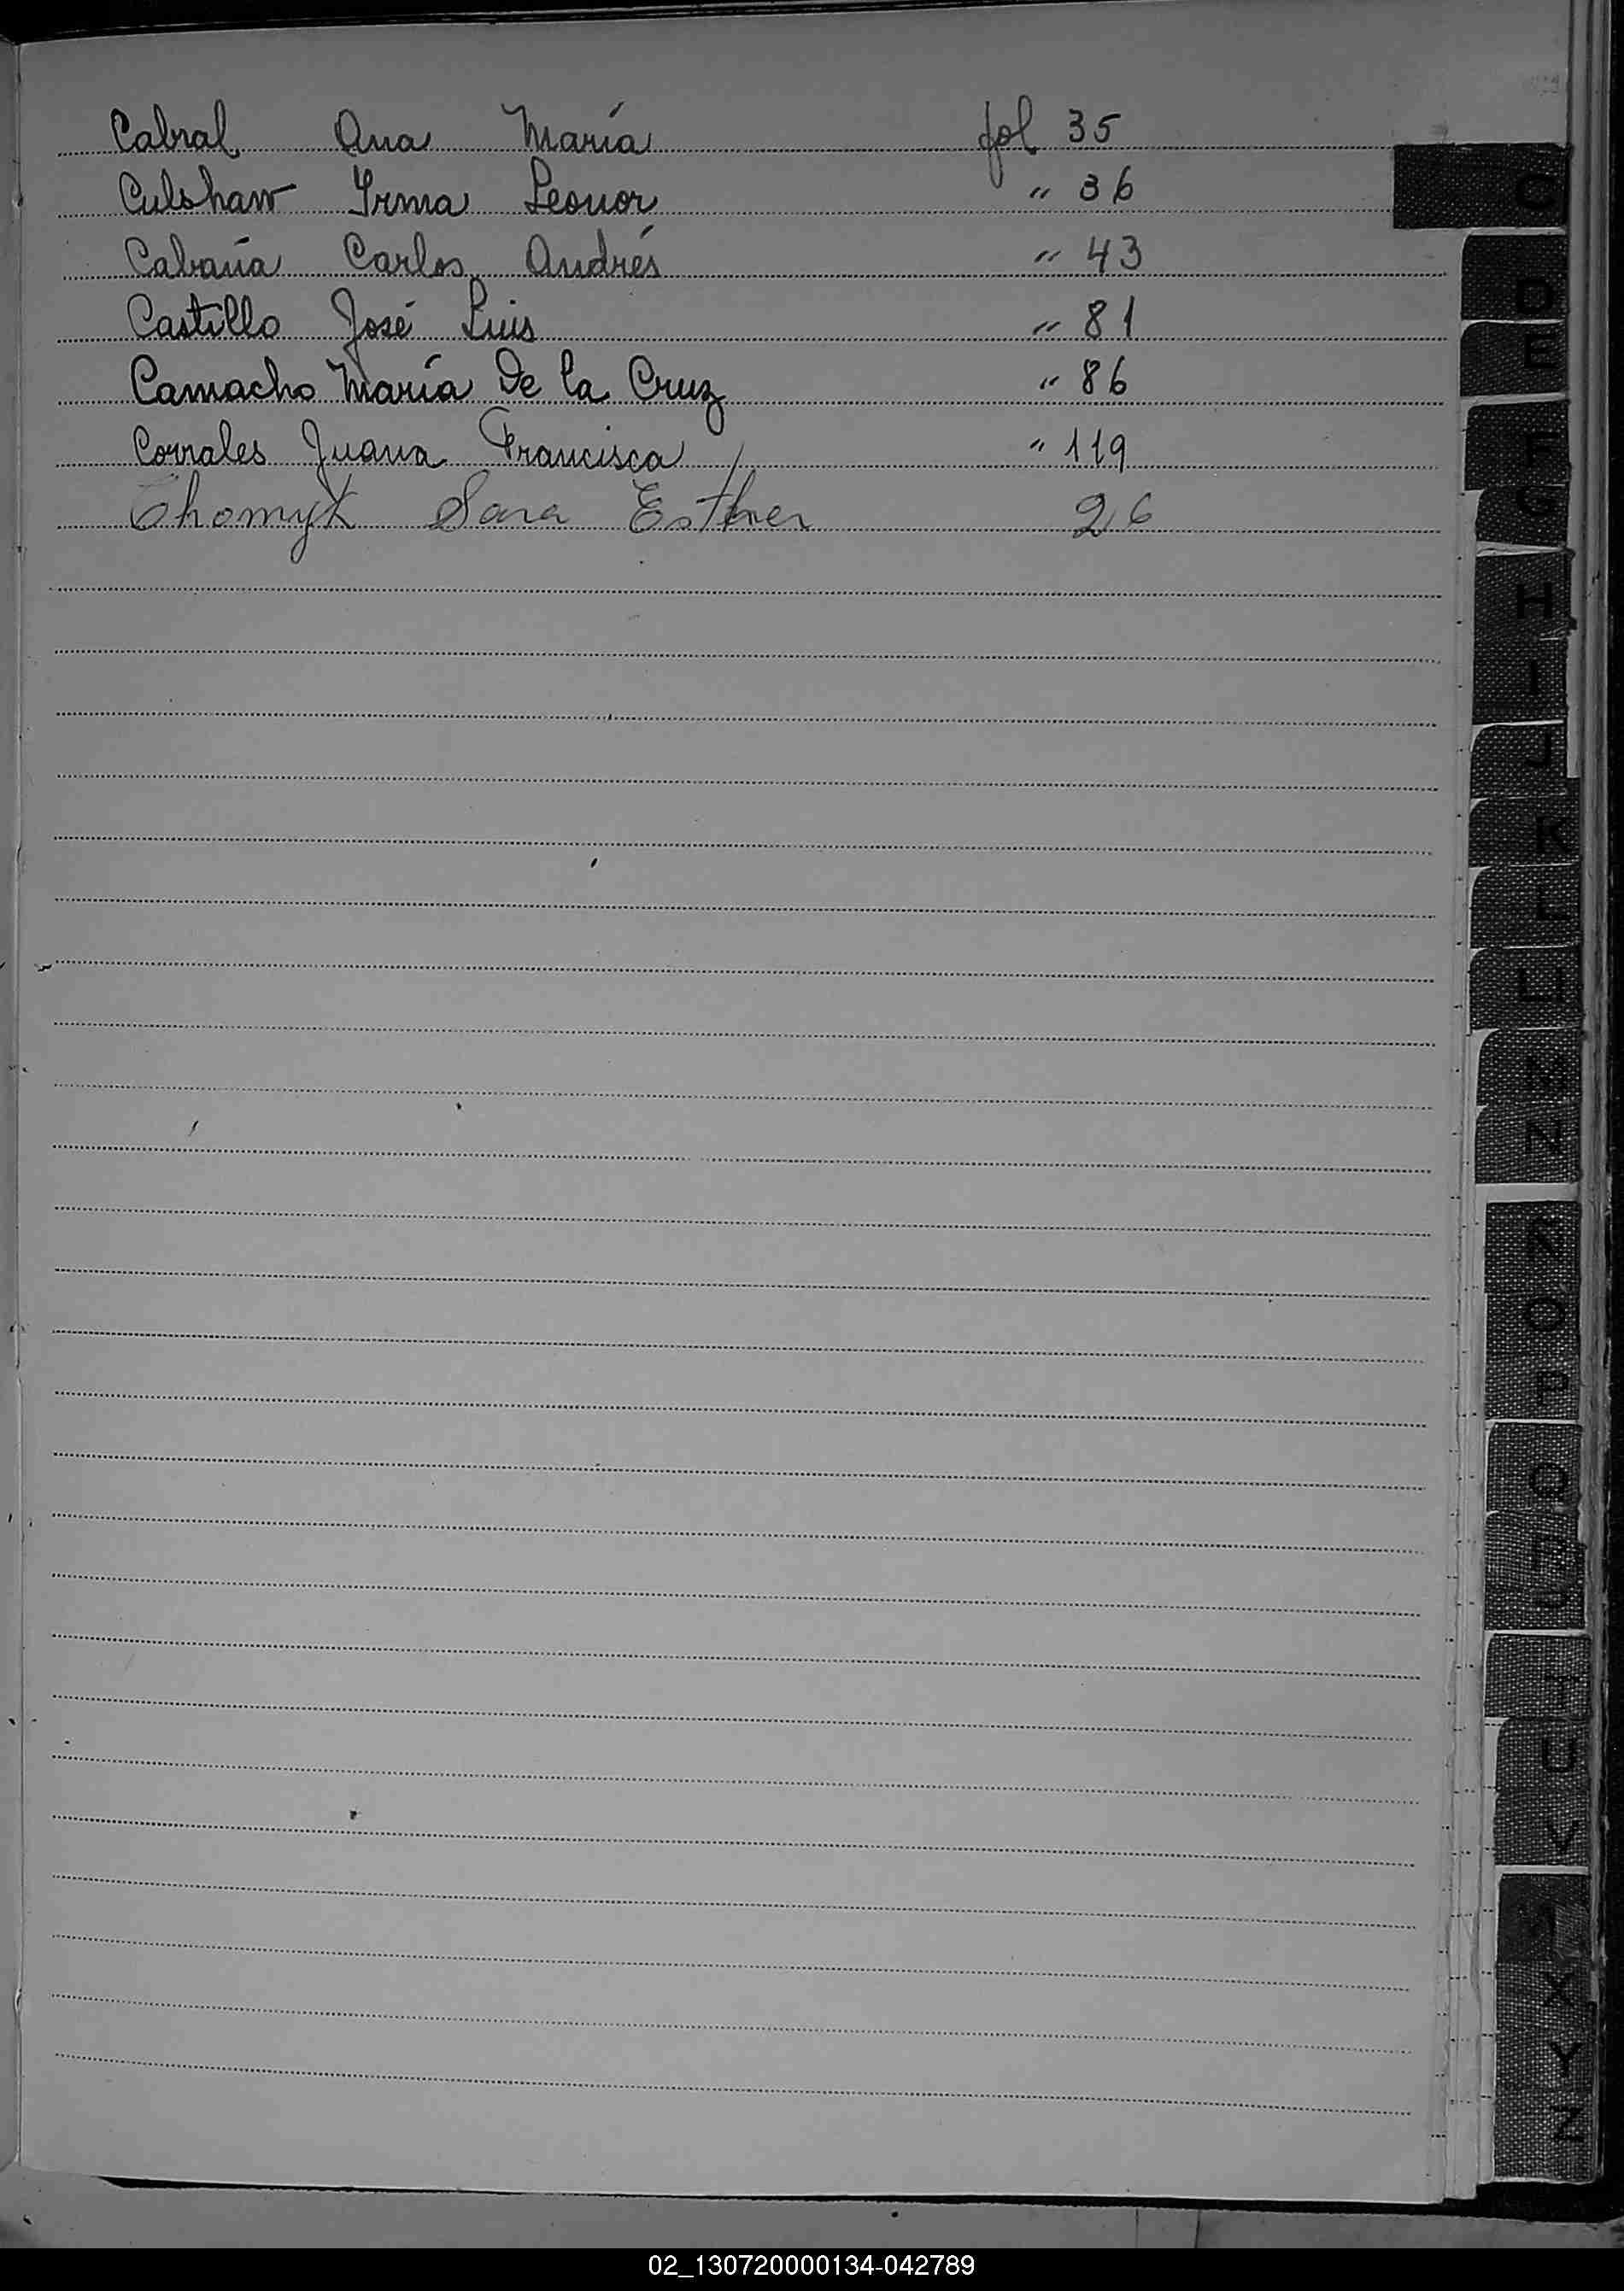 Cabral Ana María fol 35
Culshaw Irma Leonor " 36
Cabaña Carlos Andrés " 43
Castillo José Luis " 81
Camacho María De la Cruz " 86
Corrales Juana Francisca " 119
Chomyk Sara Esther 26
C
D
E
F
G
H
I
J
K
L
Ll
M
N
Ñ
O
P
Q
R
T
U
V
X
Y
Z
02_130720000134-042789